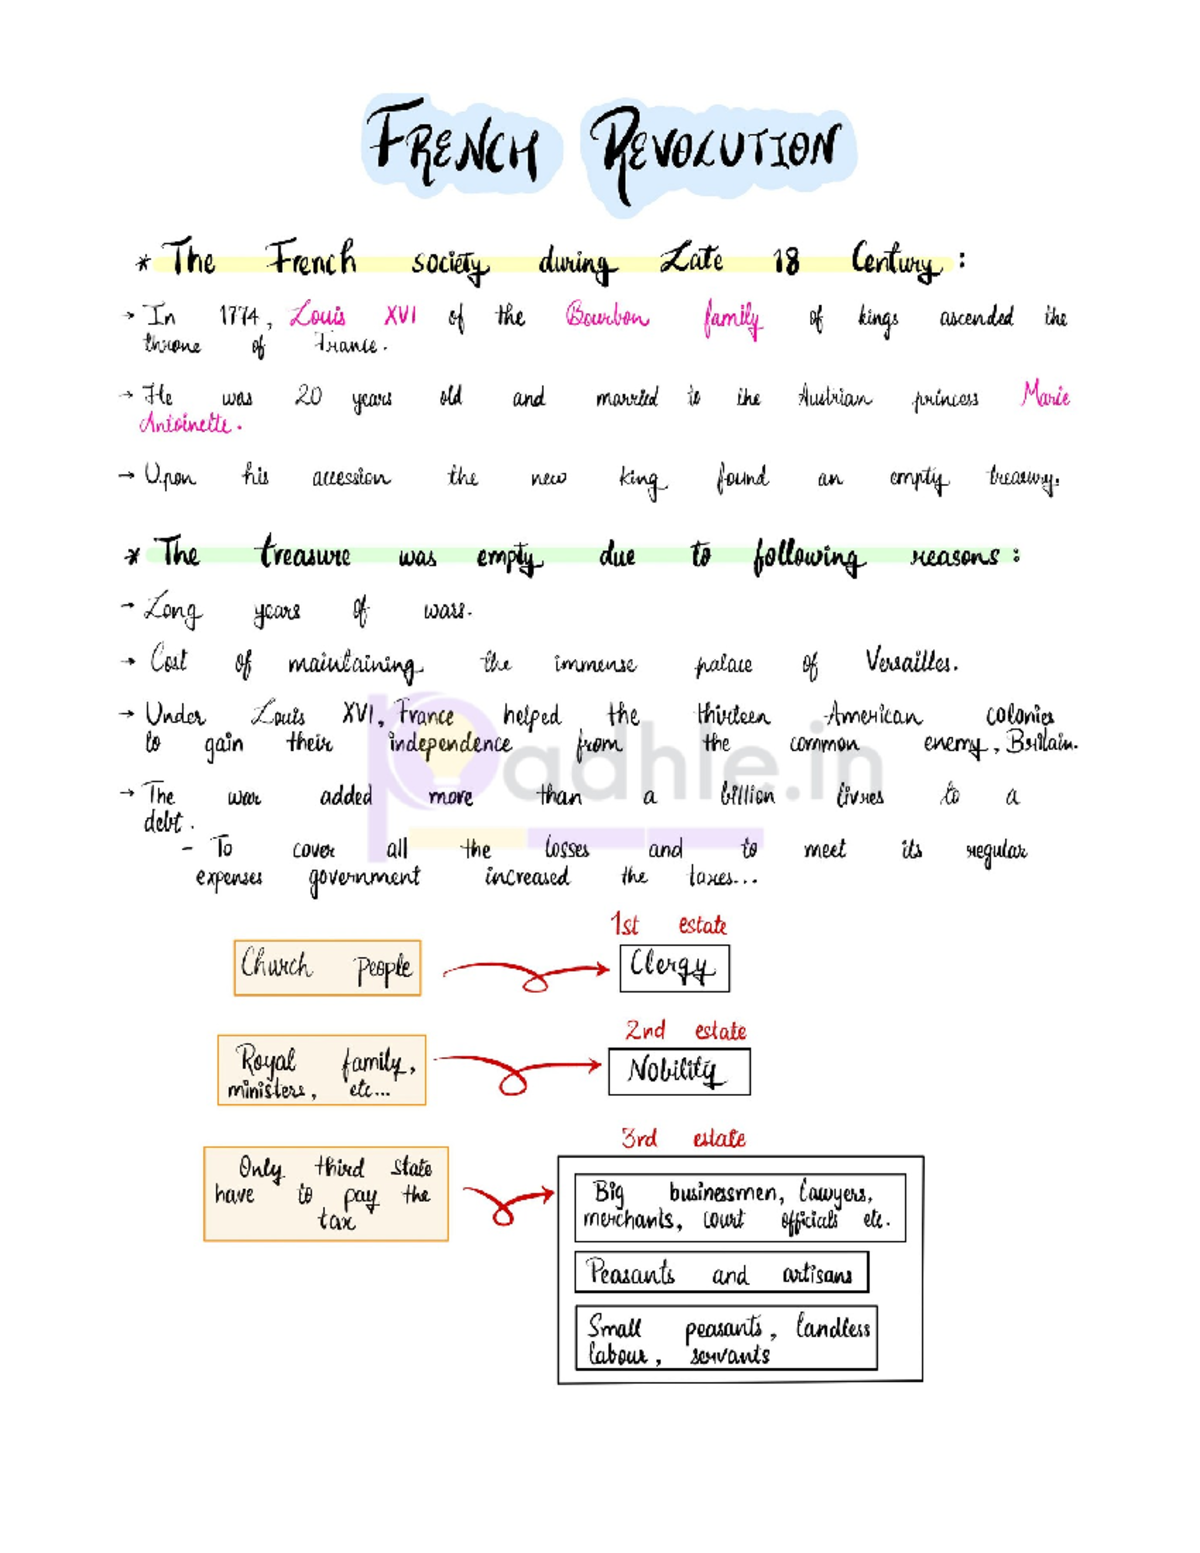 FRENCH REVOLUTION
* The French society during Late 18 Century :
→ In 1774, Louis XVI of the Bourbon family of kings ascended the
throne of France.
→ He was 20 years old and married to the Austrian princess Marie
Antoinette.
→ Upon his accession the new king found an empty treasury.
* The treasure was empty due to following reasons :
→ Long years of wars.
→ Cost of maintaining the immense palace of Versailles.
→ Under Louis XVI, France helped the thirteen American colonies
to gain their independence from the common enemy, Britain.
padhle.in
→ The war added more than a billion livres to a
debt.
- To cover all the losses and to meet its regular
expenses government increased the taxes...
1st estate
Church People → Clergy
2nd estate
Royal family, → Nobility
ministers, etc...
3rd estate
Only third state
have to pay the
tax
Big businessmen, lawyers,
merchants, court officials etc.
Peasants and artisans
Small peasants, landless
labour, servants